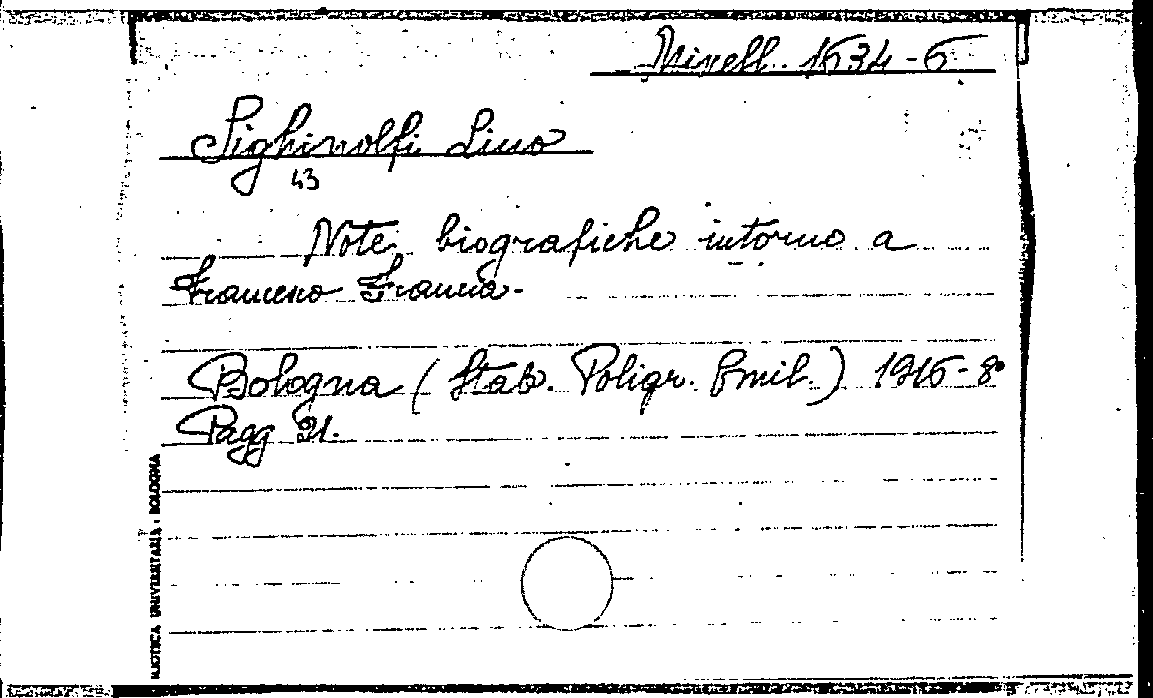 Miscell. 1634-6
Sighinolfi Lino
43
Note biografiche intorno a
Francesco Francia.
Bologna (Stab. Poligr. Emil.) 1916-8°
Pagg 21.
BLIOTECA UNIVERSITARIA - BOLOGNA